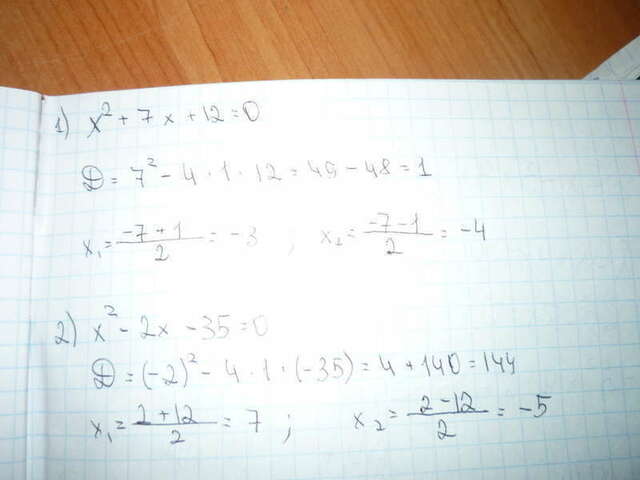 1) x² + 7x + 12 = 0
D = 7² - 4 · 1 · 12 = 49 - 48 = 1
x₁ = (-7 + 1)/2 = -3 ; x₂ = (-7 - 1)/2 = -4
2) x² - 2x - 35 = 0
D = (-2)² - 4 · 1 · (-35) = 4 + 140 = 144
x₁ = (2 + 12)/2 = 7 ; x₂ = (2 - 12)/2 = -5